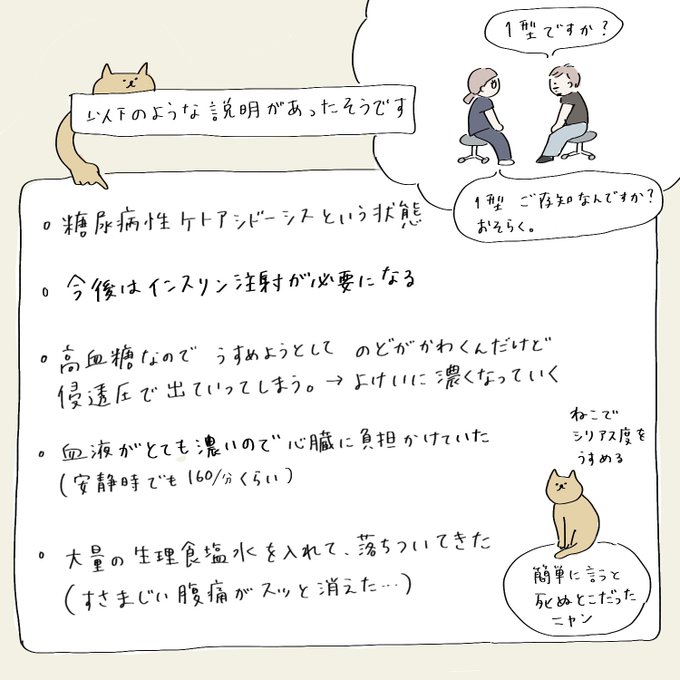 1型ですか？
1型 ご存知なんですか？
おそらく。
以下のような説明があったそうです
糖尿病性ケトアシドーシスという状態
今後はインスリン注射が必要になる
高血糖なので うすめようとして のどがかわくんだけど
侵透圧で出ていってしまう。→ よけいに濃くなっていく
血液がとても濃いので心臓に負担かけていた
(安静時でも160/分くらい)
大量の生理食塩水を入れて、落ちついてきた
(すさまじい腹痛がスッと消えた…)
ねこで
シリアス度を
うすめる
簡単に言うと
死ぬとこだった
ニャン